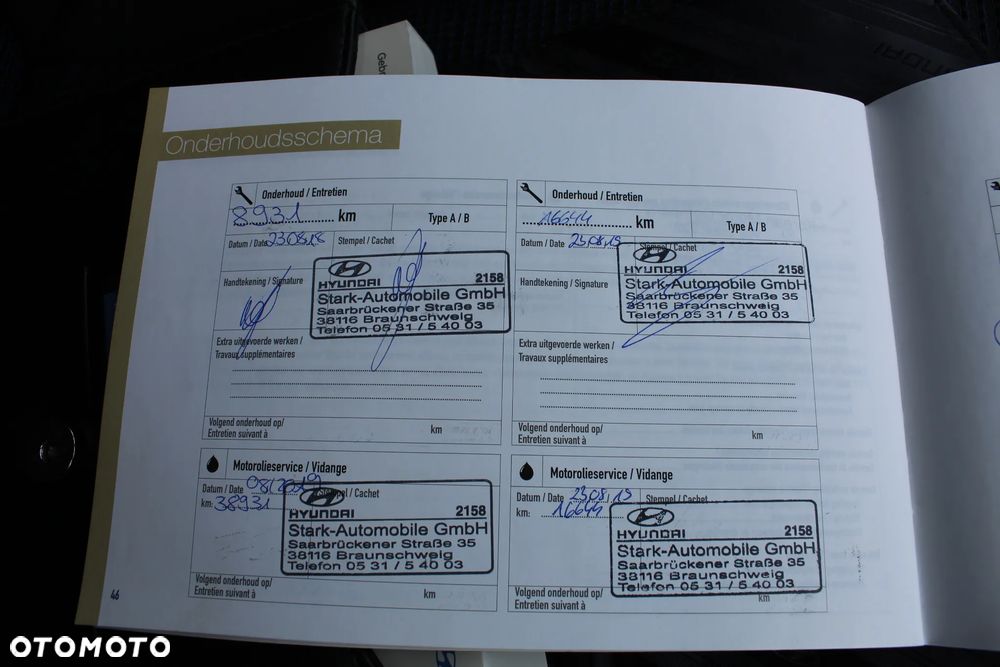 Gebr
Onderhoudsschema
Onderhoud / Entretien
8931 km
Type A / B
Datum / Date 23.08.18
Stempel / Cachet
Handtekening / Signature
HYUNDAI 2158
Stark-Automobile GmbH
Saarbrückener Straße 35
38116 Braunschweig
Telefon 05 31 / 5 40 03
Extra uitgevoerde werken /
Travaux supplémentaires
Volgend onderhoud op/
Entretien suivant à
km
Onderhoud / Entretien
16644 km
Type A / B
Datum / Date 23.08.19
Stempel / Cachet
Handtekening / Signature
HYUNDAI 2158
Stark-Automobile GmbH
Saarbrückener Straße 35
38116 Braunschweig
Telefon 05 31 / 5 40 03
Extra uitgevoerde werken /
Travaux supplémentaires
Volgend onderhoud op/
Entretien suivant à
km
Motorolieservice / Vidange
Datum / Date
Stempel / Cachet
km: 38931
HYUNDAI 2158
Stark-Automobile GmbH
Saarbrückener Straße 35
38116 Braunschweig
Telefon 05 31 / 5 40 03
Volgend onderhoud op/
Entretien suivant à
km
Motorolieservice / Vidange
Datum / Date 23.08.19
Stempel / Cachet
km: 16644
HYUNDAI 2158
Stark-Automobile GmbH
Saarbrückener Straße 35
38116 Braunschweig
Telefon 05 31 / 5 40 03
Volgend onderhoud op/
Entretien suivant à
km
46
OTOMOTO